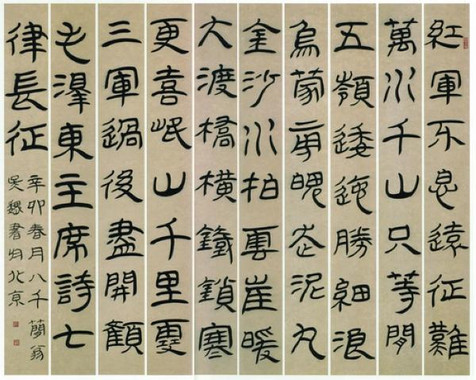 紅軍不怕遠征難
萬水千山只等閒
五嶺逶迤騰細浪
烏蒙旁魄走泥丸
金沙水拍雲崖暖
大渡橋橫鐵鎖寒
更喜岷山千里雪
三軍過後盡開顏
毛澤東主席詩七
律長征
辛卯春月八千簡翁
吴書於北京